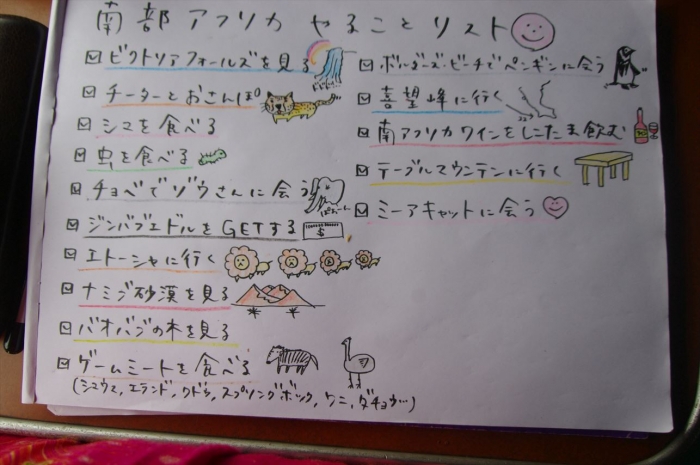 南部アフリカ やることリスト
ビクトリアフォールズを見る
チーターとおさんぽ
シマを食べる
虫を食べる
チョベでゾウさんに会う
ぱおーん
ジンバブエドルをGETする
$
エトーシャに行く
ナミブ砂漠を見る
バオバブの木を見る
ゲームミートを食べる
(シマウマ, エランド, クドゥ, スプリングボック, ワニ, ダチョウ…)
ボルダーズ・ビーチでペンギンに会う
喜望峰に行く
南アフリカワインをしこたま飲む
テーブルマウンテンに行く
ミーアキャットに会う